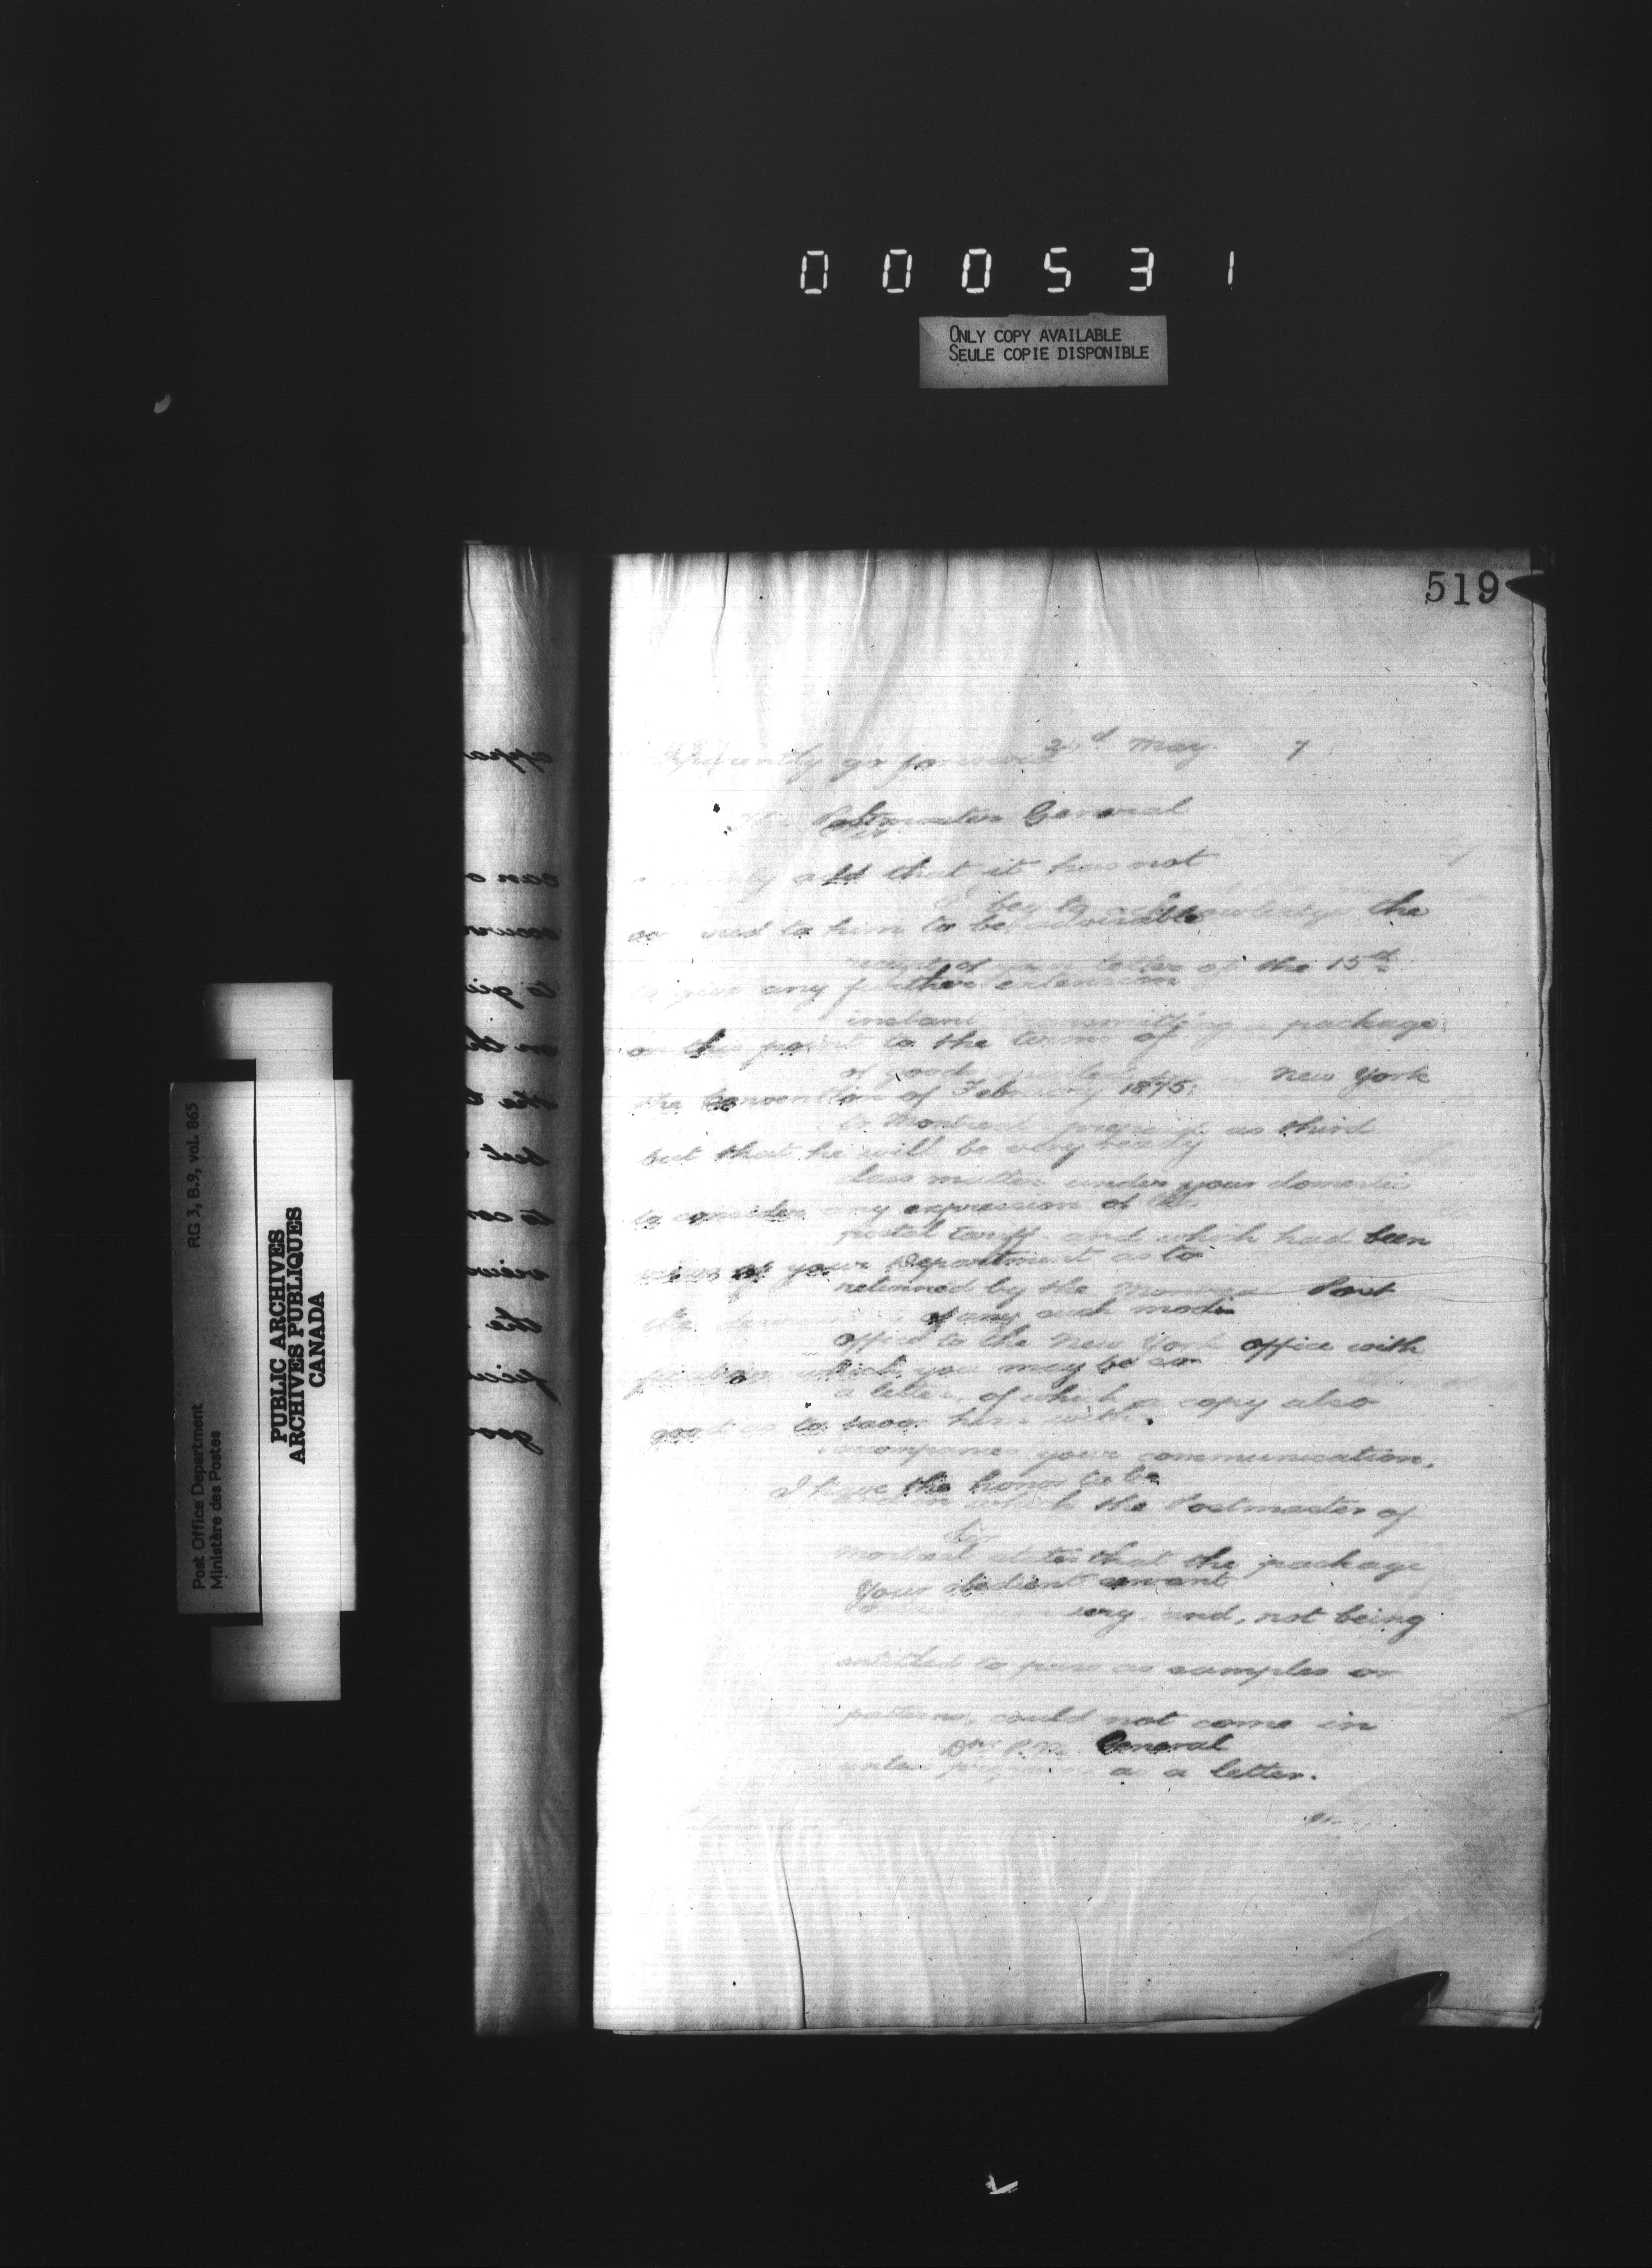 000531
ONLY COPY AVAILABLE
SEULE COPIE DISPONIBLE
519
RG 3, B.9, vol. 865
Post Office Department
Ministère des Postes
PUBLIC ARCHIVES
ARCHIVES PUBLIQUES
CANADA
May 7
go forward
Postmaster General
add that it has not
I beg to acknowledge the
to him to be advisable
receipt of your letter of the 15th
to give any further extension
instant transmitting a package
on this point to the terms of
of goods New York
the Convention of February 1875;
to Montreal prepaid as third
but that he will be very ready
class matter under your domestic
to consider any expression of the
postal tariff and which had been
views of your Department as to
returned by the Post
the of any such modi
office to the New York office with
fication which you may be so
a letter, of which a copy also
good as to favor him with.
accompanies your communication,
I have the honor to be
and in which the Postmaster of
Sir
Montreal states that the package
Your obedient servant
and, not being
entitled to pass as samples or
patterns, could not come in
General
unless prepaid as a letter.